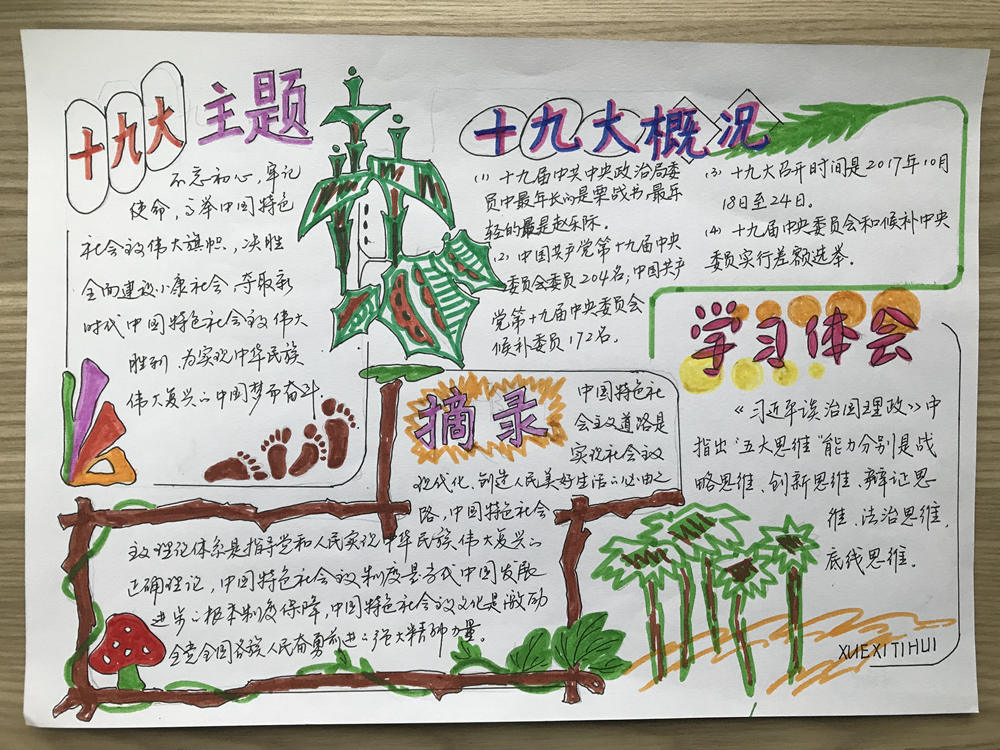 十九大 主题
不忘初心,牢记
使命,高举中国特色
社会主义伟大旗帜,决胜
全面建设小康社会,夺取新
时代中国特色社会主义伟大
胜利,为实现中华民族
伟大复兴的中国梦而奋斗.
十九大概况
(1) 十九届中共中央政治局委
员中最年长的是栗战书,最年
轻的最是赵乐际.
(2) 中国共产党第十九届中央
委员会委员204名,中国共产
党第十九届中央委员会
候补委员172名。
(3) 十九大召开时间是2017年10月
18日至24日。
(4) 十九届中央委员会和候补中央
委员实行差额选举.
摘录
中国特色社
会主义道路是
实现社会主义
现代化、创造人民美好生活的必由之
路,中国特色社会
主义理论体系是指导党和人民实现中华民族伟大复兴的
正确理论,中国特色社会主义制度是当代中国发展
进步的根本制度保障,中国特色社会主义文化是激励
全党全国各族人民奋勇前进的强大精神力量。
学习体会
《习近平谈治国理政》中
指出"五大思维"能力分别是战
略思维、创新思维、辩证思
维、法治思维、
底线思维。
XUEXITIHUI